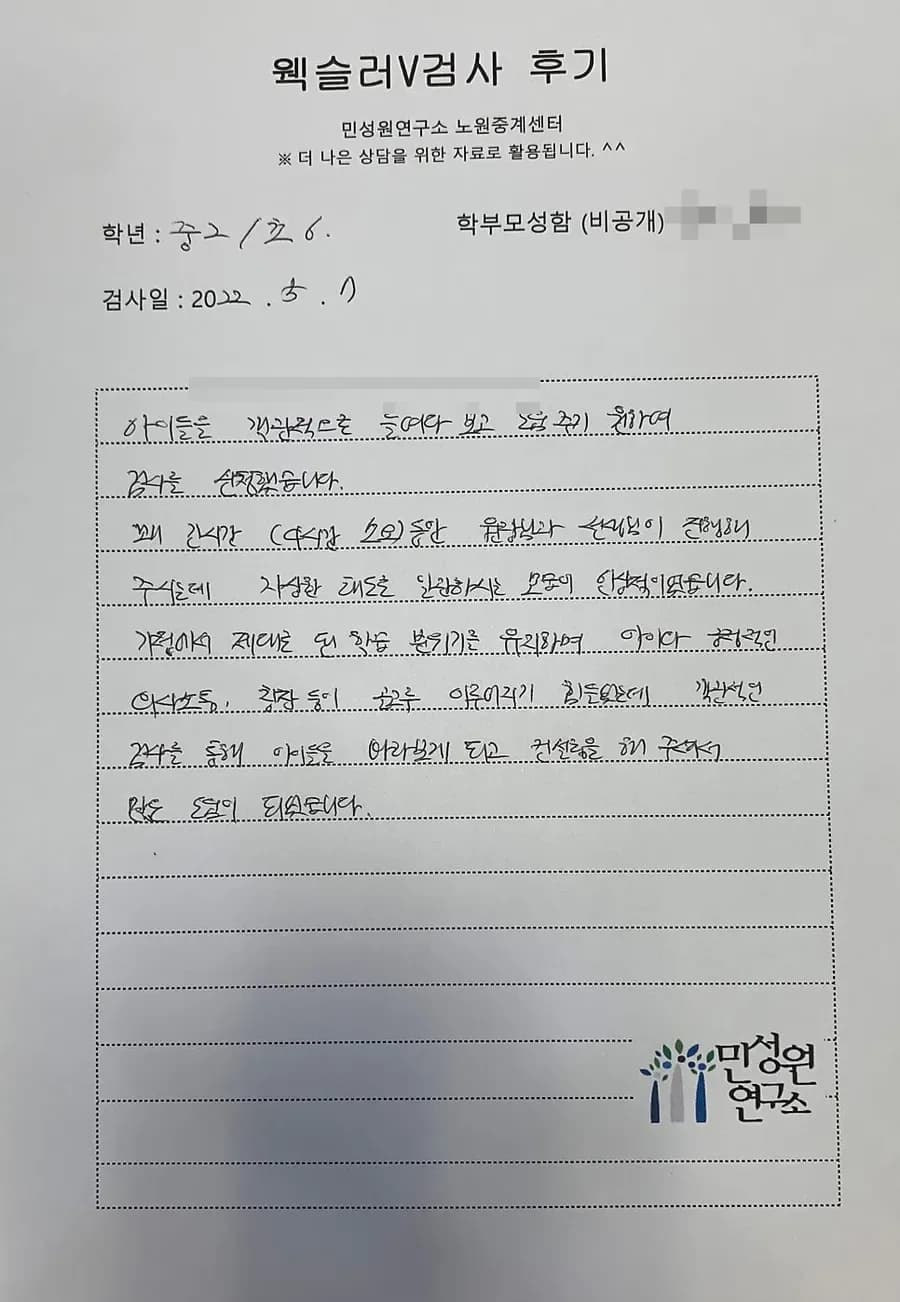 웩슬러V검사 후기
민성원연구소 노원중계센터
※ 더 나은 상담을 위한 자료로 활용됩니다. ^^
학년 : 중2 / 초 6.
학부모성함 (비공개)
검사일 : 2022 . 5 . 7
아이들을 객관적으로 들여다 보고 도움주기 원하여
검사를 신청했습니다.
꽤 긴시간 (4시간 소요)동안 원장님과 선생님이 진행해
주시는데 자상한 태도로 일관하시는 모습이 인상적이었습니다.
가정에서 제대로 된 학습 분위기를 유지하며 아이와 긍정적인
의사소통, 칭찬 등이 골고루 이루어지기 힘들었는데 객관적인
검사를 통해 아이들을 바라보게 되고 컨설팅을 해 주셔서
많은 도움이 되었습니다.
민성원
연구소